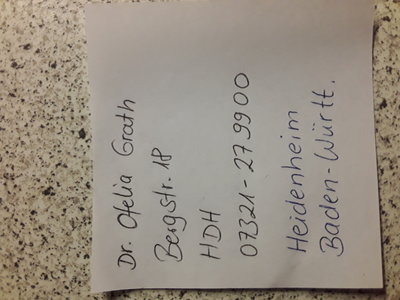 Dr. Ofelia Grath
Bergstr. 18
HDH
07321-279900
Heidenheim
Baden-Württ.